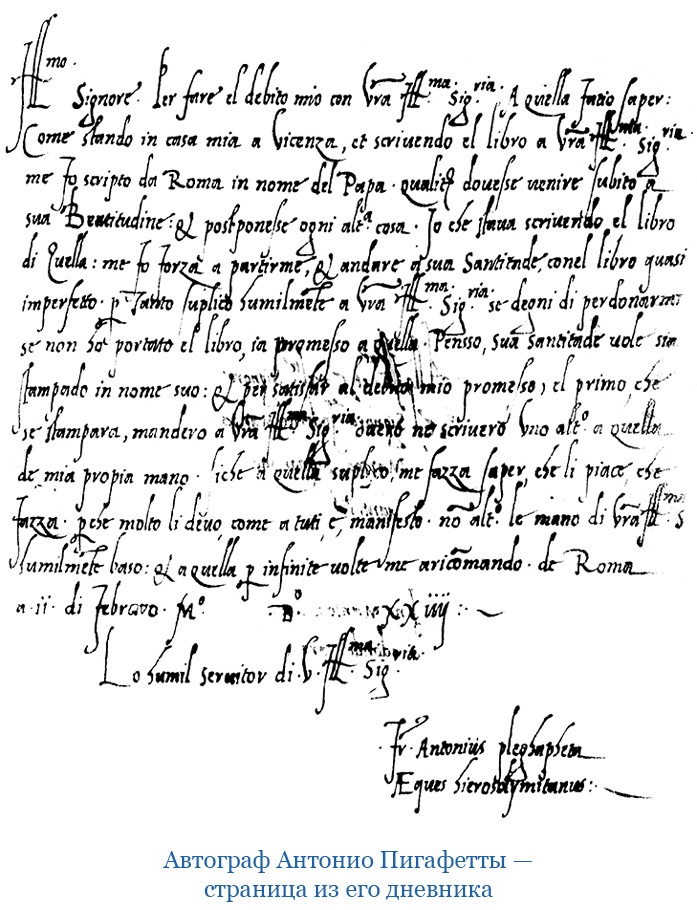 Ill.mo
Signore. Per fare el debito mio con Vra Ill.ma Sig.ria. A quella facio saper:
Come stando in casa mia a Vicenza, et scrivendo el libro a Vra Ill.ma Sig.ria.
me fo scripto da Roma in nome del Papa. dovesse venire subito a
sua Beatitudine: & postponesse ogni alt.a cosa. Io che stava scrivendo el libro
di Quella: me fo forza a partirme, & andare a sua Santitade, con el libro quasi
imperfetto. p Tanto suplico humilmēte a Vra Ill.ma Sig.ria. se degni di perdonarmi
se non ho portato el libro, ia promesso a quella. Pensso, sua Santitade vole sia
stampado in nome suo: & per satisfar al debito mio promesso, el primo che
se stampara, mandero a Vra Ill.ma Sig.ria overo ne scrivero Uno alt.o a quella
de mia propia mano. a quella suplico, me fazza saper, che li piace che
fazza. pche molto li devo, come a tuti e manifesto. nō alt.o le mano di Vra Ill.ma S
humilmēte baso: & a quella p infinite volte me aricōmando. de Roma
a ii. di febraro. M.o D.o XXiiij:
Lo humil servitor di. V. Ill.ma Sig.ria.
Fr. Antonius pleghapheta
Æques hierosolymitanus:
Автограф Антонио Пигафетты —
страница из его дневника